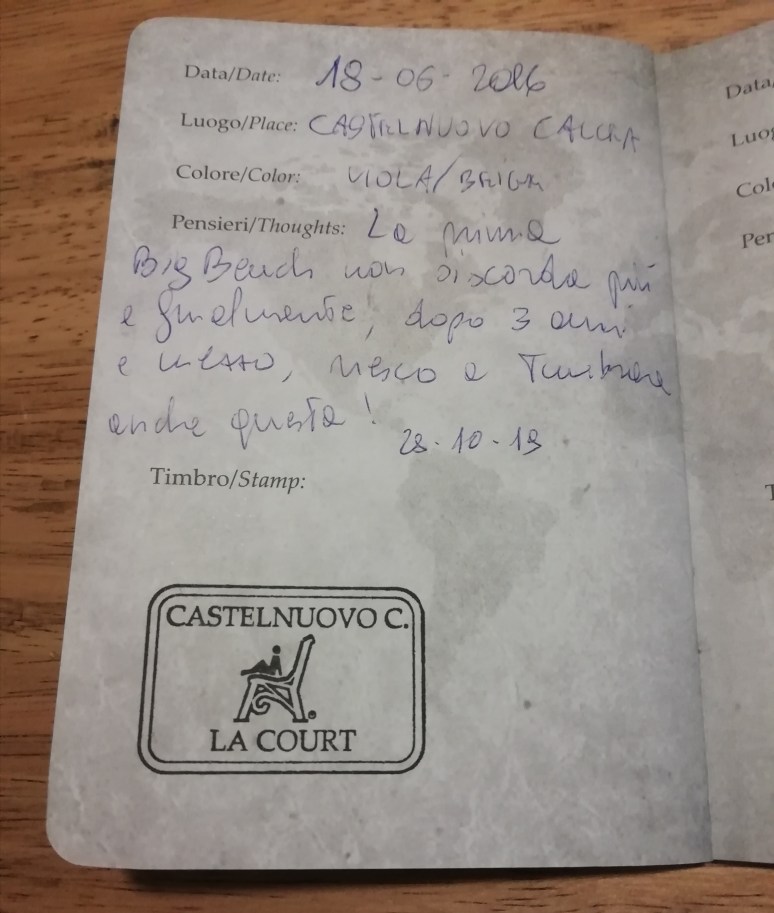 Data/Date: 18-06-2016
Luogo/Place: CASTELNUOVO CALCEA
Colore/Color: VIOLA/BEIGE
Pensieri/Thoughts: La prima
Big Bench non si scorda più
e finalmente, dopo 3 anni
e mezzo, riesco a Timbrare
anche questa!
28-10-19
Timbro/Stamp:
CASTELNUOVO C.
LA COURT
Data/
Luog
Col
Per